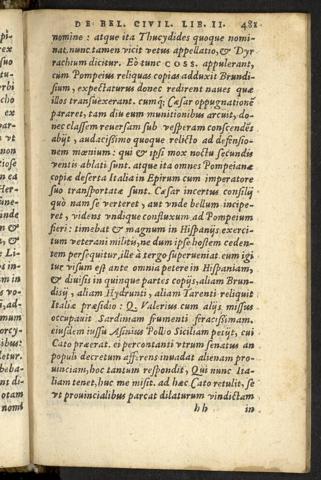 DE BEL. CIVIL. LIB. II. 481
nomine: atque ita Thucydides quoque nomi-
nat. nunc tamen vicit vetus appellatio, & Dyr
rachium dicitur. Eò tunc COSS. appulerant,
cum Pompeius reliquas copias adduxit Brundi-
sium, expectaturus donec redirent naues quæ
illos transuexerant. cumq; Cæsar oppugnationē
pararet, tam diu eum munitionibus arcuit, do-
nec classem reuersam sub vesperam conscendēs
abijt, audacissimo quoque relicto ad defensio-
nem mœnium: qui & ipsi mox noctu secundis
ventis ablati sunt. atque ita omnes Pompeianæ
copiæ deserta Italia in Epirum cum imperatore
suo transportatæ sunt. Cæsar incertus consilij
quò nam se verteret, aut vnde bellum incipe-
ret, videns vndique confluxum ad Pompeium
fieri: timebat & magnum in Hispanijs exerci-
tum veterani militis, ne dum ipse hostem ceden-
tem persequitur, ille à tergo superueniat. eum igi
tur visum est ante omnia petere in Hispaniam,
& diuisis in quinque partes copijs, aliam Brun-
disij, aliam Hydrunti, aliam Tarenti reliquit
Italiæ præsidio: Q. Valerius cum alijs missus
occupauit Sardiniam frumenti feracissimam.
eiusdem iussu Asinius Pollio Siciliam petijt, cui
Cato præerat. ei percontanti vtrum senatus an
populi decretum afferens inuadat alienam pro-
uinciam, hoc tantum respondit, Qui nunc Ita-
liam tenet, huc me misit. ad hæc Cato retulit, se
vt prouincialibus parcat dilaturum vindictam
hh in